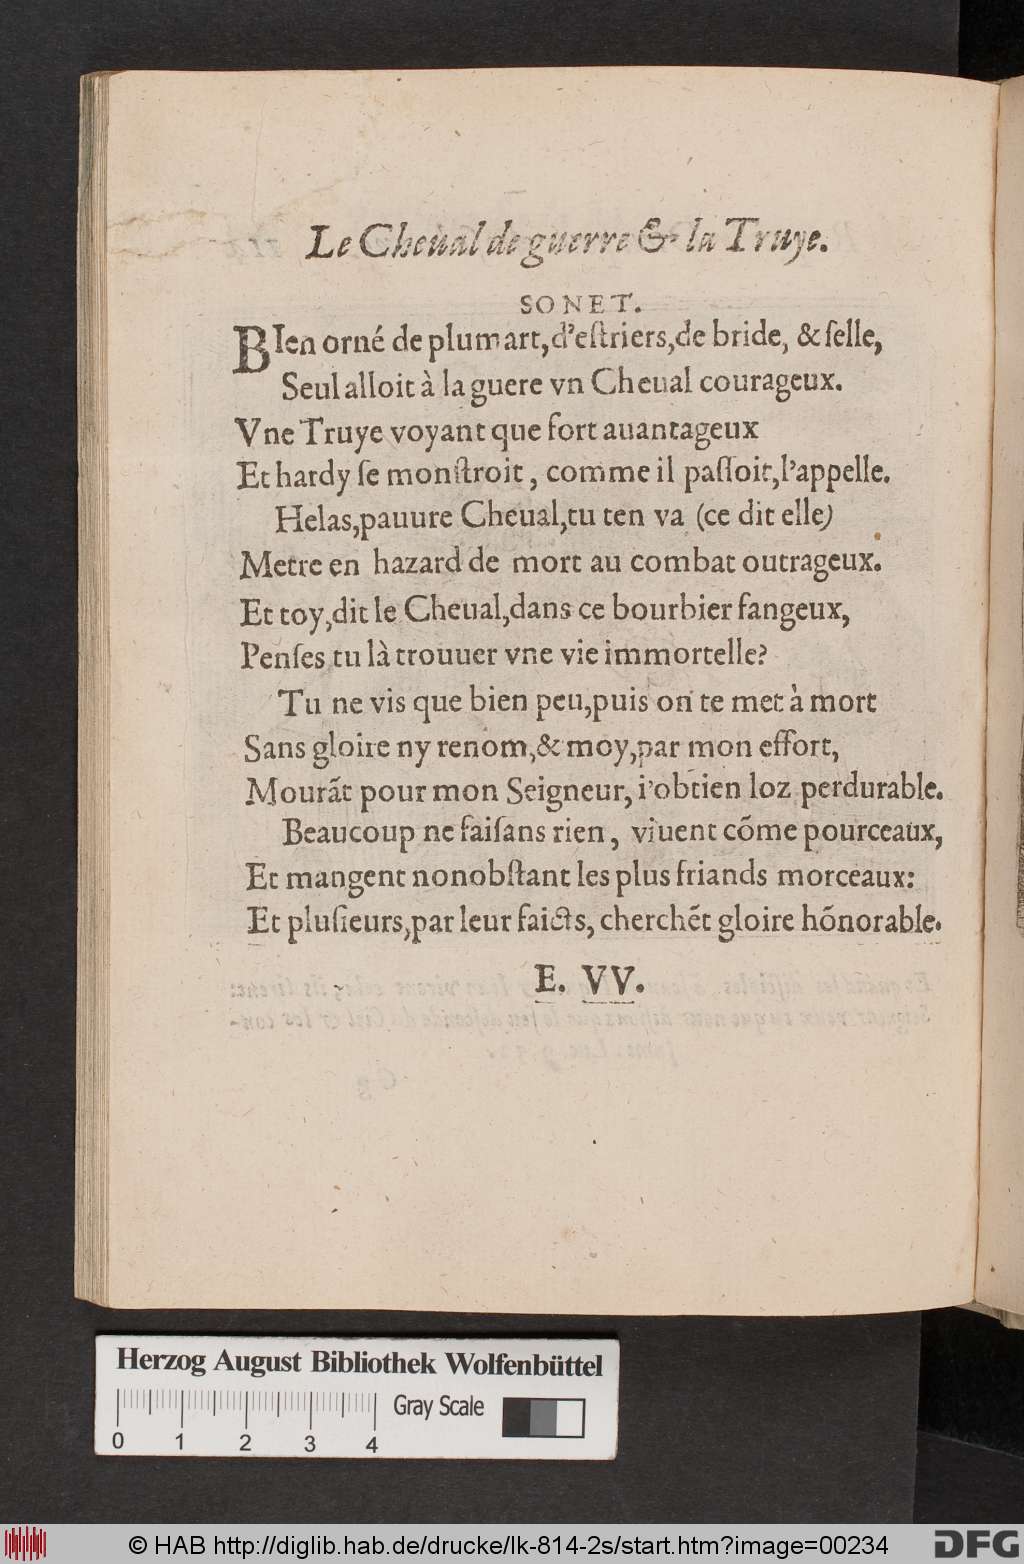 Le Cheual de guerre & la Truye.
SONET.
BIen orné de plumart, d'eſtriers, de bride, & ſelle,
Seul alloit à la guere vn Cheual courageux.
Vne Truye voyant que fort auantageux
Et hardy ſe monſtroit, comme il paſſoit, l'appelle.
Helas, pauure Cheual, tu ten va (ce dit elle)
Metre en hazard de mort au combat outrageux.
Et toy, dit le Cheual, dans ce bourbier fangeux,
Penſes tu là trouuer vne vie immortelle?
Tu ne vis que bien peu, puis on te met à mort
Sans gloire ny renom, & moy, par mon effort,
Mourãt pour mon Seigneur, i'obtien loz perdurable.
Beaucoup ne faiſans rien, viuent cõme pourceaux,
Et mangent nonobſtant les plus friands morceaux:
Et pluſieurs, par leur faicts, cherchẽt gloire hõnorable.
E. VV.
Herzog August Bibliothek Wolfenbüttel
Gray Scale
0 1 2 3 4
© HAB http://diglib.hab.de/drucke/lk-814-2s/start.htm?image=00234
DFG